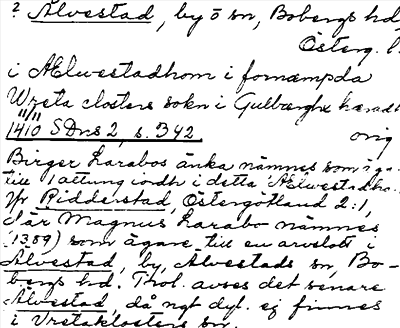 ? Alvestad, by ö sn, Bobergs hd
Österg. l.
i Ælwestadhom i fornæmpda
Wreta closters sokn i Gulbærghx hæradh
11/11
1410 SDns 2, s. 342 orig
Birger Larabos änka nämnes som äga-
till 1 attung iordh i detta Ælwestadha.
Jfr Ridderstad, Östergötland 2:1,
där Magnus Larabo nämnes
(1389) som ägare till en arvslott i
Alvestad, by, Alvestads sn, Bo-
bergs hd. Trol. avses det senare
Alvestad, då ngt dyl. ej finnes
i Vretaklosters sn.